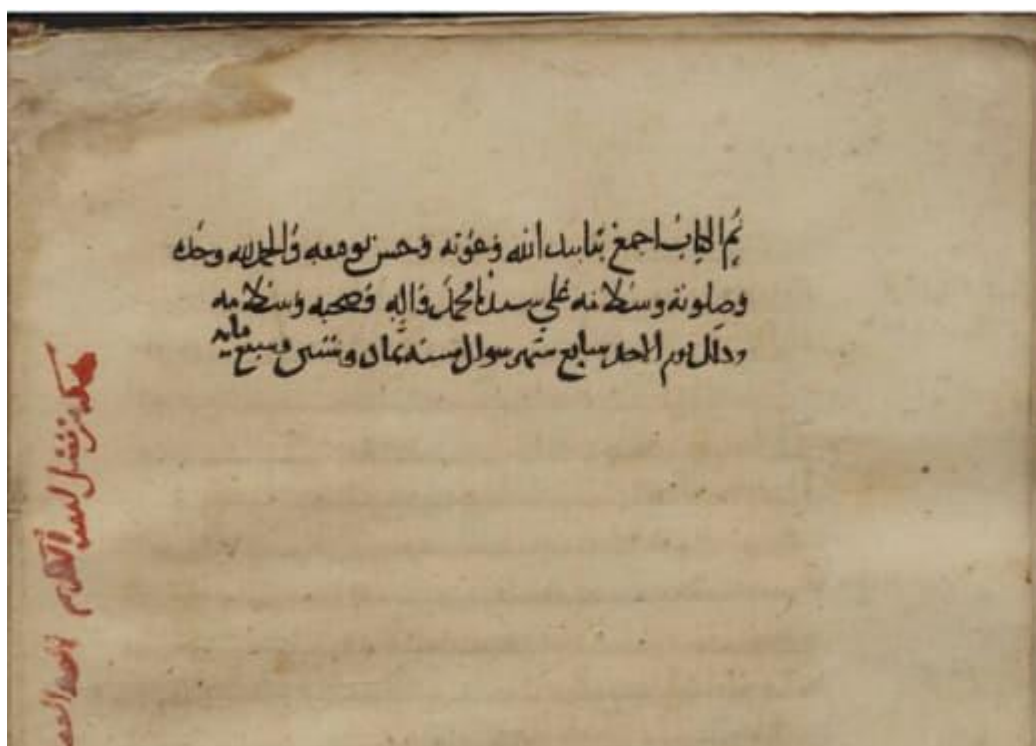 تم الكتاب اجمع بتاييد الله وعونه وحسن توفيقه والحمد لله وحده
وصلوته وسلامه علي سيدنا محمد واله وصحبه وسلامه
وذلك يوم الاحد سابع شهر شوال سنه ثمان وستين وسبع مايه